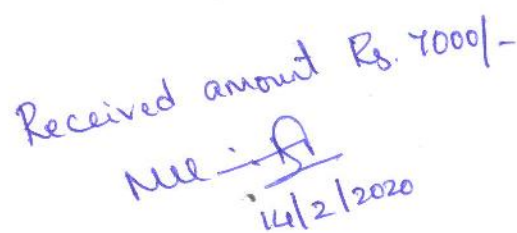 Received amount Rs. 7000/-
14/2/2020